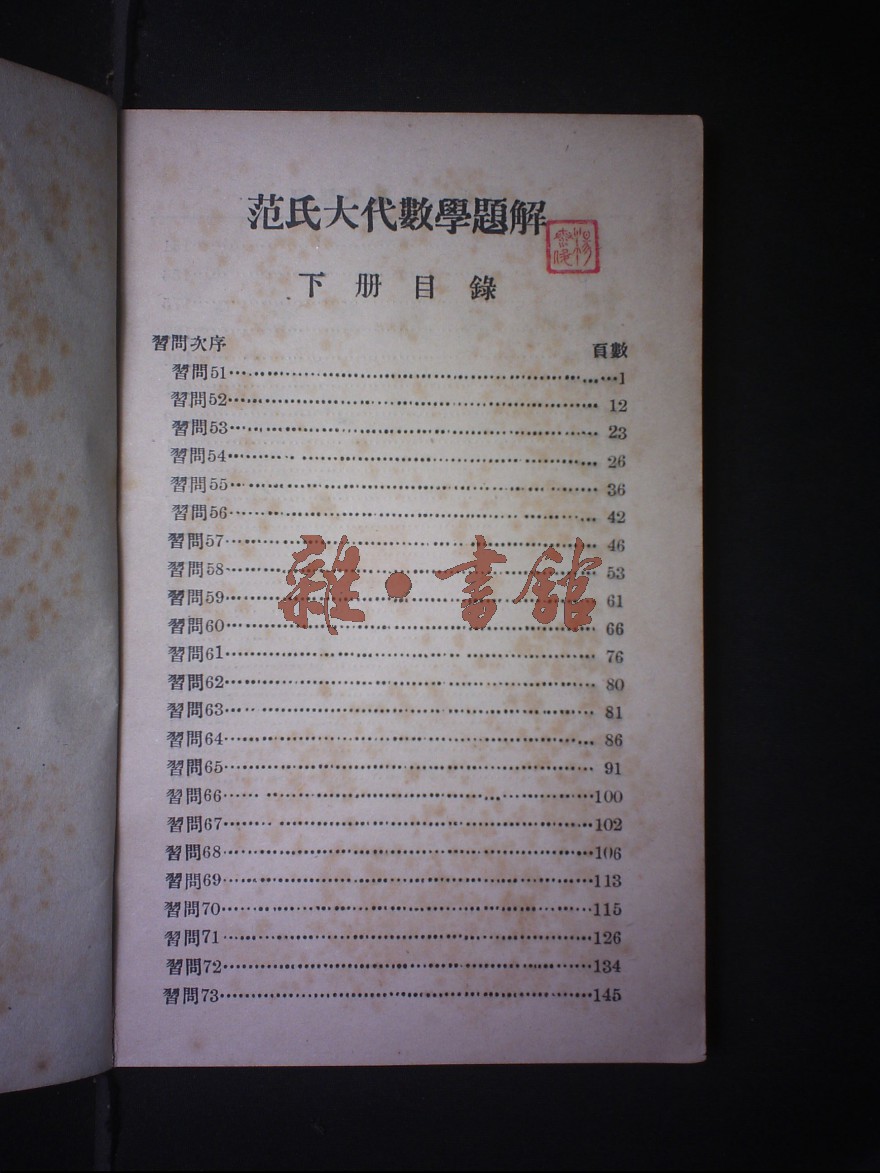 范氏大代數學題解
下册目錄
習問次序 頁數
習問51 1
習問52 12
習問53 23
習問54 26
習問55 36
習問56 42
習問57 46
習問58 53
習問59 61
習問60 66
習問61 76
習問62 80
習問63 81
習問64 86
習問65 91
習問66 100
習問67 102
習問68 106
習問69 113
習問70 115
習問71 126
習問72 134
習問73 145
雜·書館